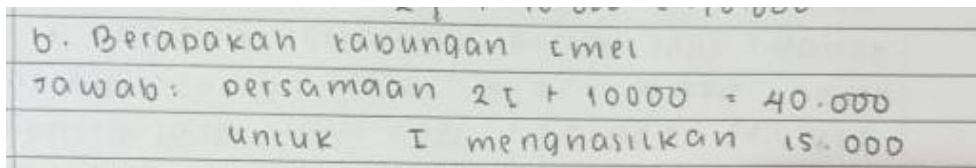 b. Berapakah tabungan Imel
Jawab: persamaan 2I + 10000 = 40.000
untuk I menghasilkan 15.000